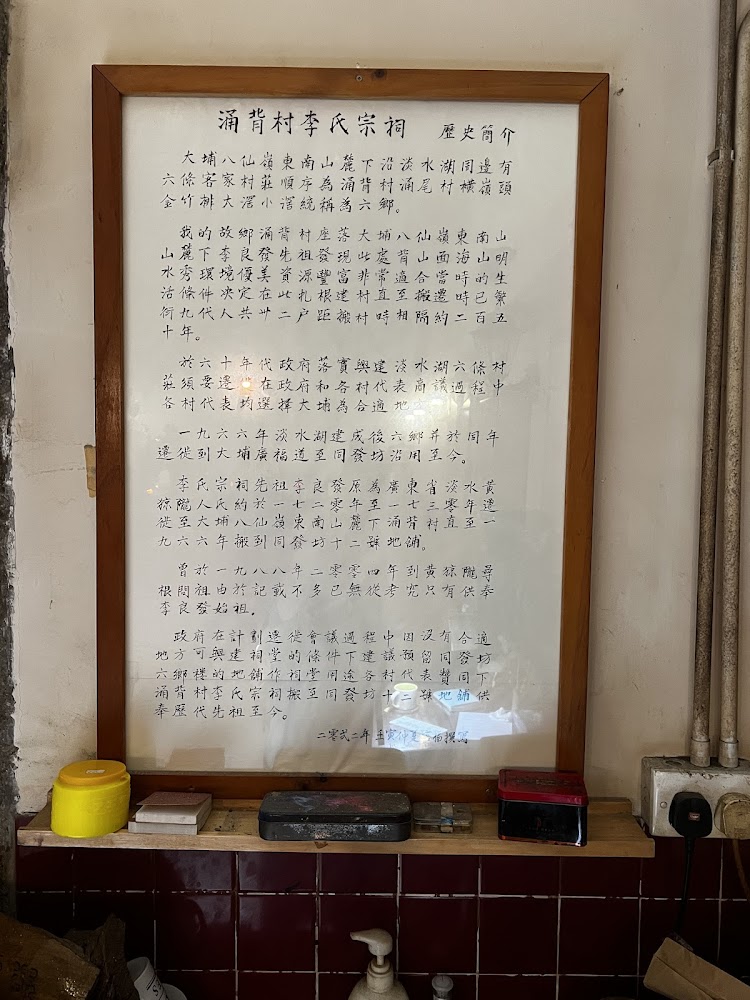 涌背村李氏宗祠 歷史簡介
大埔八仙嶺東南山麓下沿淡水湖周邊有
六條客家村莊順序為涌背村涌尾村橫嶺頭
金竹排大滘小滘統稱為六鄉。
我的故鄉涌背村座落大埔八仙嶺東南山
山麓下李良發先祖發現此處背山面海山明
水秀環境優美資源豐富非常適合當時的生
活條件決定在此扎根建村直至搬遷時已繁
衍九代人共卅二户距搬村時相隔約二百五
十年。
於六十年代政府落實興建淡水湖六條村
莊須要遷徙在政府和各村代表商議過程中
各村代表均選擇大埔為合適地
一九六六年淡水湖建成後六鄉并於同年
遷徙到大埔廣福道至同發坊沿用至今。
李氏宗祠先祖李良發原為廣東省淡水黃
猄隴人氏約於一七二零年至一七三零年遷
徙至大埔八仙嶺東南山麓下涌背村直至一
九六六年搬到同發坊十二號地舖。
曾於一九八八年二零零四年到黃猄隴尋
根問祖由於記載不多已無從考究只有供奉
李良發始祖.
政府在計劃遷徙會議過程中因沒有合適
地方可興建祠堂的條件下建議預留同發坊
六鄉樓的地舖作祠堂用途各村代表贊同下
涌背村李氏宗祠搬至同發坊十二號地舖供
奉歷代先祖至今。
二零弍二年
撰寫